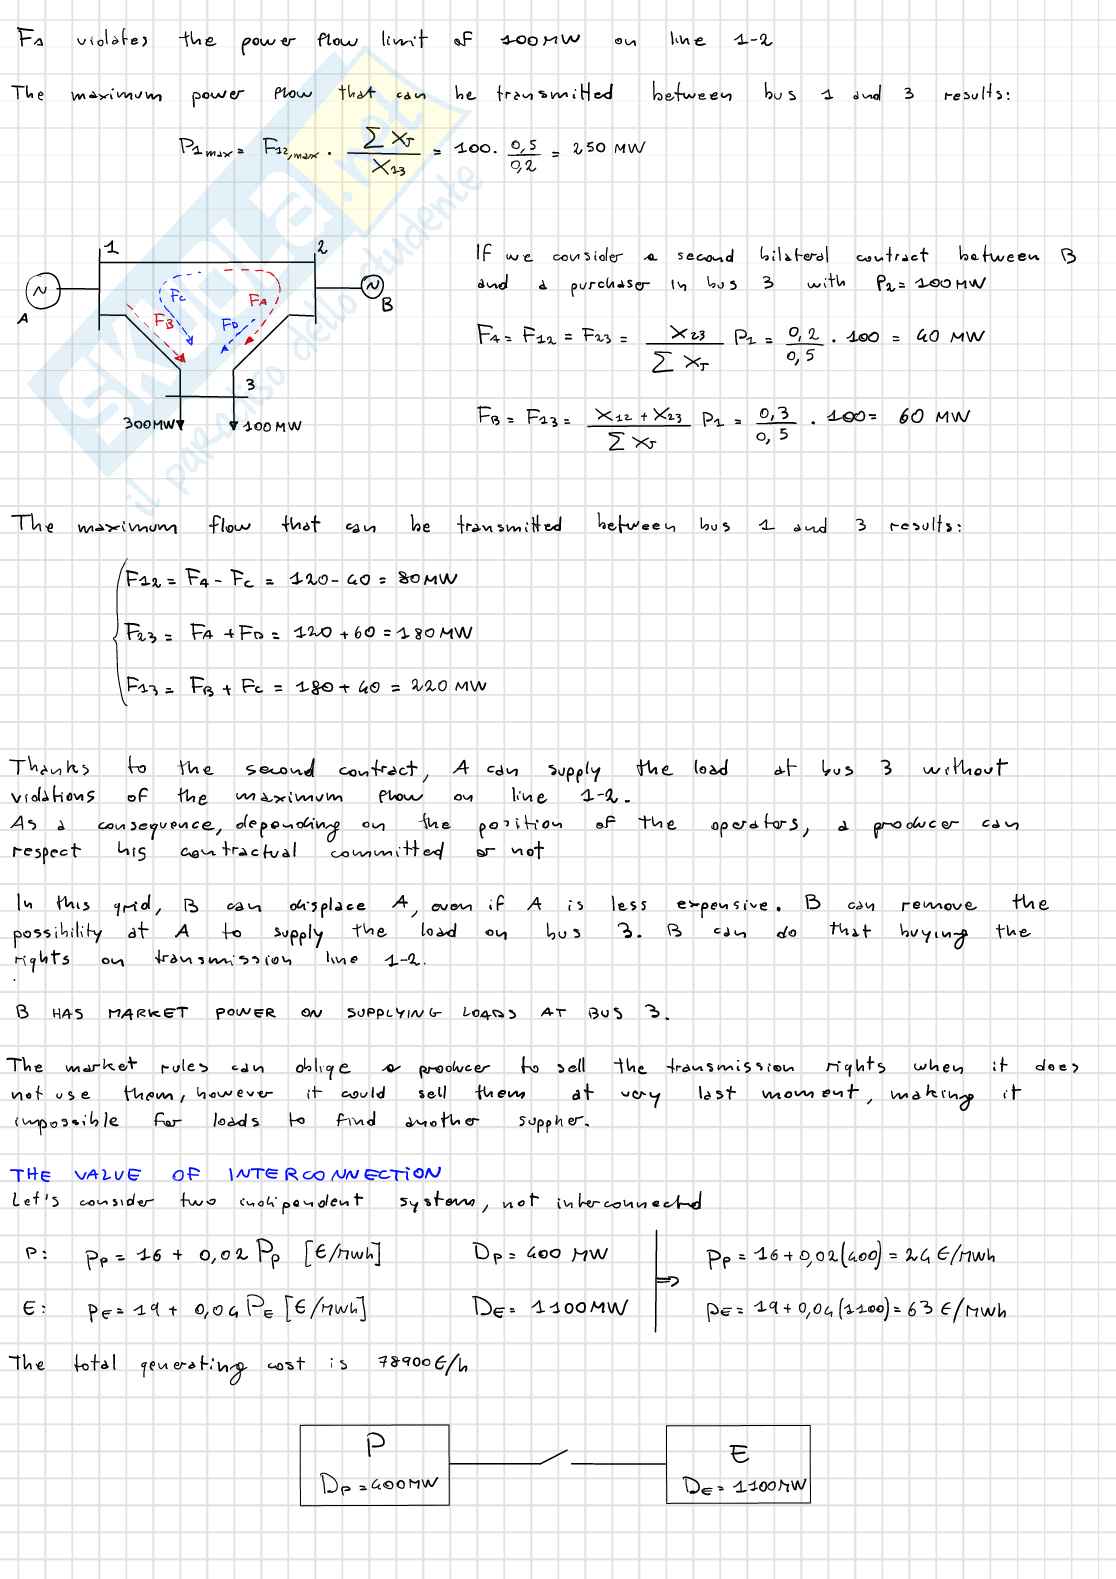 FA violates the power flow limit of 100MW on line 1-2
The maximum power flow that can be transmitted between bus 1 and 3 results:
P1max = F12,max · ∑XJ / X23 = 100 · 0,5 / 0,2 = 250 MW
1 2
A FC FA B
FB FD
3
300MW 100MW
If we consider a second bilateral contract between B
and a purchaser in bus 3 with P2 = 100MW
FA = F12 = F23 = X23 / ∑XJ P1 = 0,2 / 0,5 · 100 = 40 MW
FB = F13 = X12 + X23 / ∑XJ P1 = 0,3 / 0,5 · 100 = 60 MW
The maximum flow that can be transmitted between bus 1 and 3 results:
F12 = FA - FC = 120 - 40 = 80MW
F23 = FA + FD = 120 + 60 = 180MW
F13 = FB + FC = 180 + 40 = 220 MW
Thanks to the second contract, A can supply the load at bus 3 without
violations of the maximum flow on line 1-2.
As a consequence, depending on the position of the operators, a producer can
respect his contractual committed or not
In this grid, B can displace A, even if A is less expensive. B can remove the
possibility at A to supply the load on bus 3. B can do that buying the
rights on transmission line 1-2.
B HAS MARKET POWER ON SUPPLYING LOADS AT BUS 3.
The market rules can oblige a producer to sell the transmission rights when it does
not use them, however it could sell them at very last moment, making it
impossible for loads to find another supplier.
THE VALUE OF INTERCONNECTION
Let's consider two indipendent systems, not interconnected
P: pP = 16 + 0,02 PP [€/MWh] DP = 400 MW ⇒ pP = 16 + 0,02(400) = 24 €/MWh
E: pE = 19 + 0,04 PE [€/MWh] DE = 1100MW pE = 19 + 0,04(1100) = 63 €/MWh
The total generating cost is 78900€/h
P E
DP = 400MW DE = 1100MW
SKUOLA.net
il paradiso dello studente